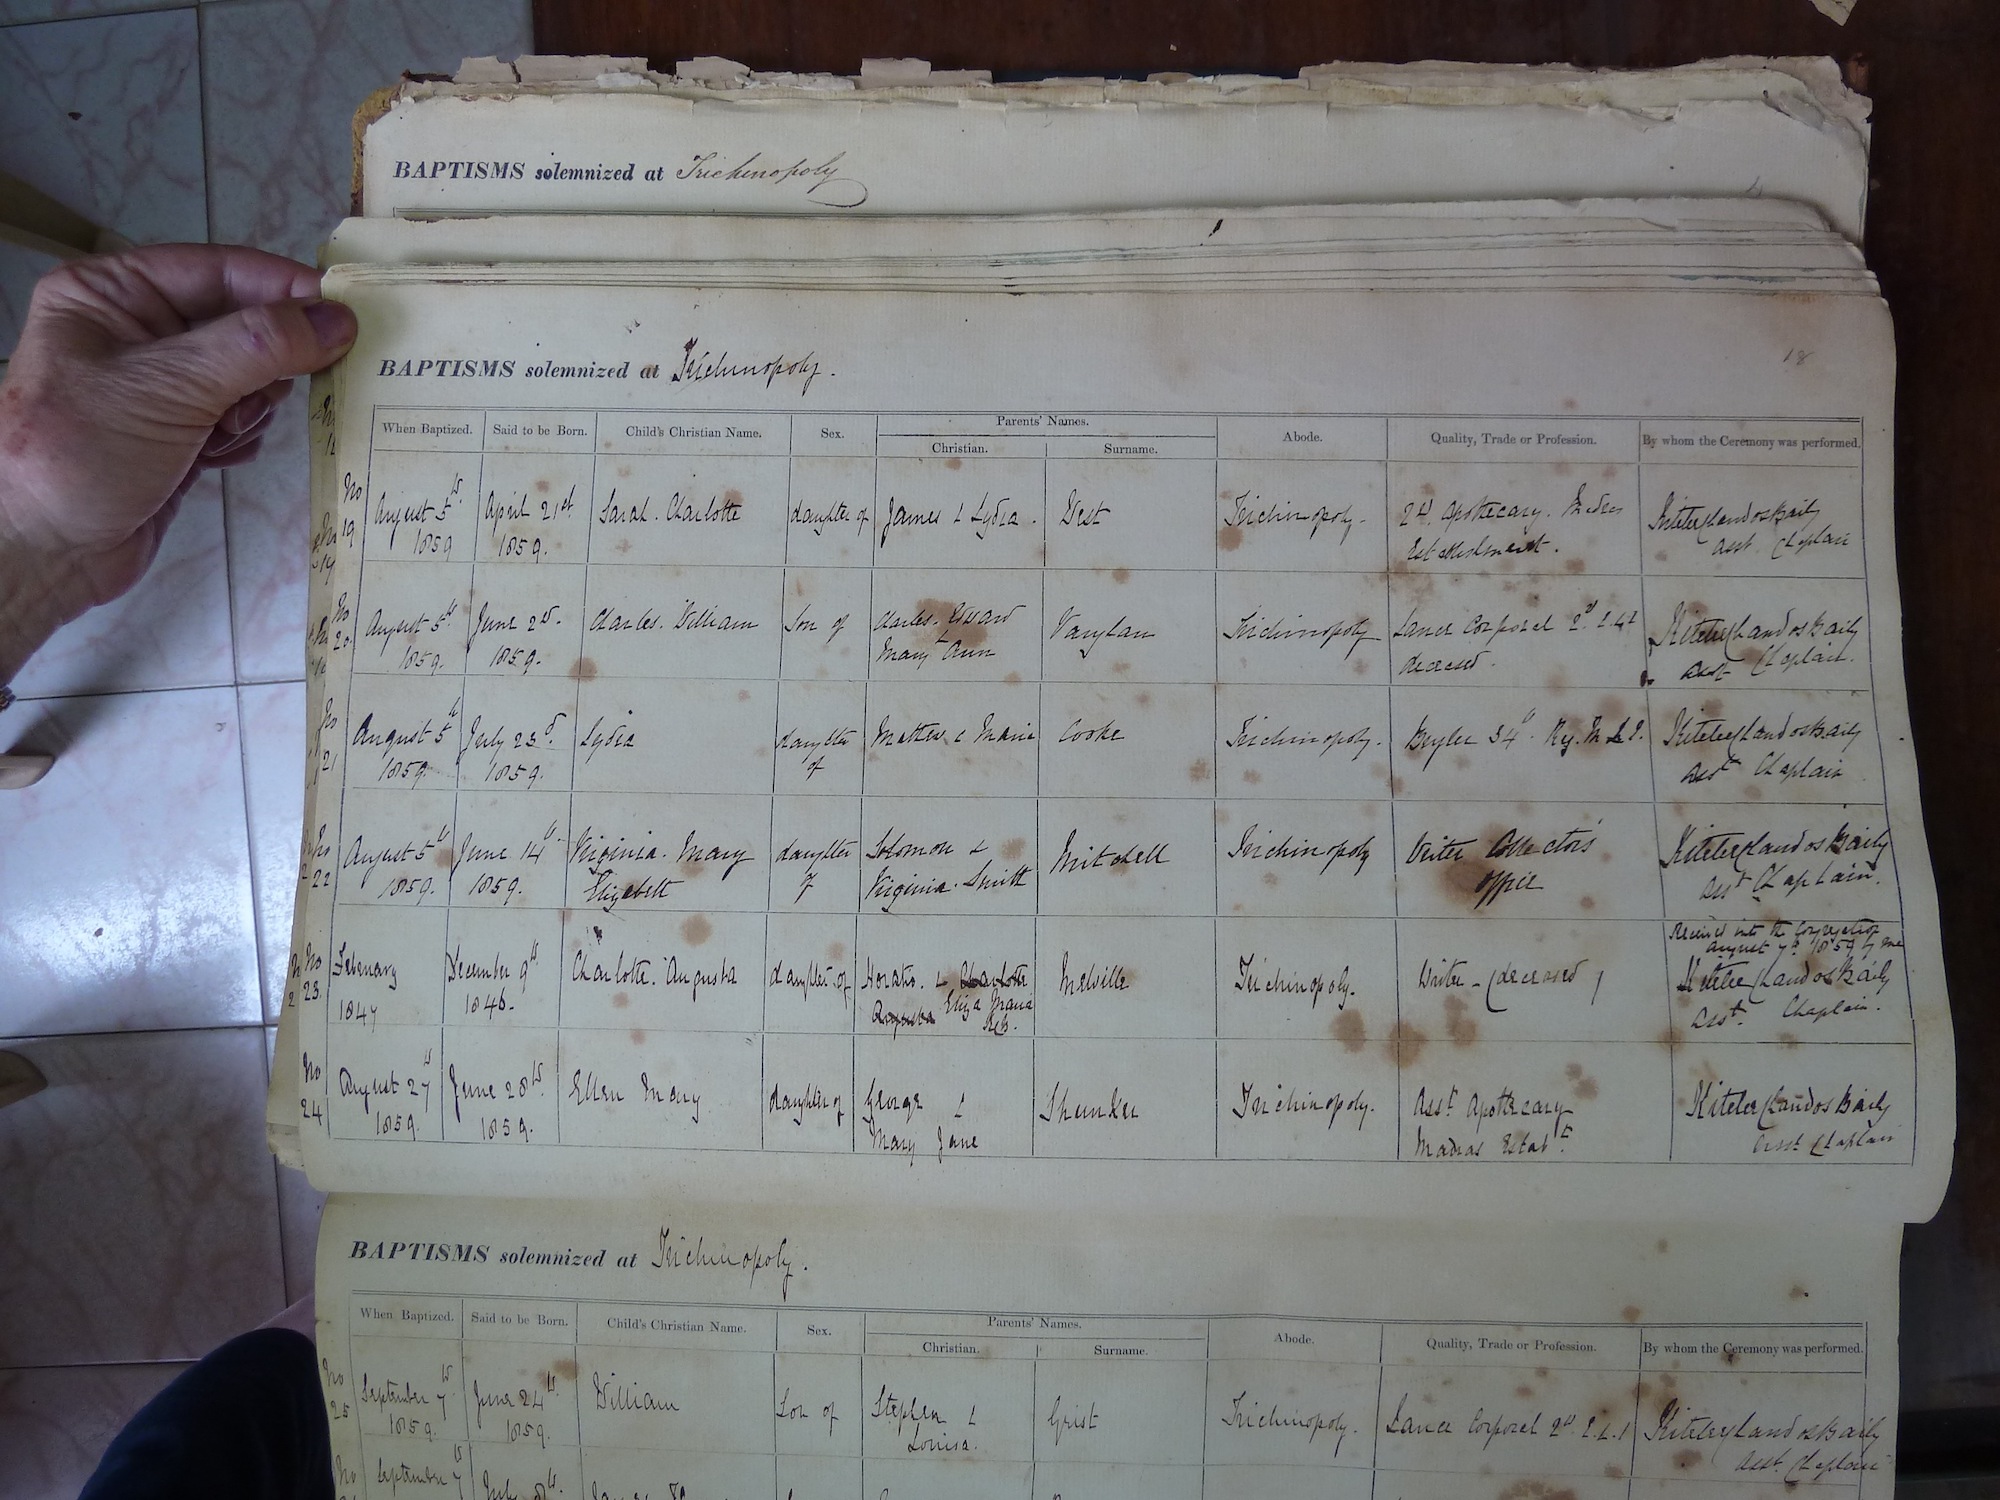 BAPTISMS solemnized at Trichinopoly
BAPTISMS solemnized at Trichinopoly.
18
When Baptized. Said to be Born. Child's Christian Name. Sex. Parents' Names. Abode. Quality, Trade or Profession. By whom the Ceremony was performed.
Christian. Surname.
No 19 August 5th 1859 April 21st 1859. Sarah Charlotte daughter of James & Lydia West Trichinopoly. 2d Apothecary. Madras Establishment. Asst. Chaplain
No 20 August 5th 1859. June 2d 1859. Charles William Son of Charles Edward & Mary Ann Vaughan Trichinopoly Lance Corporal 2d deceased. Asst Chaplain.
No 21 August 5th 1859. July 23d 1859. Lydia daughter of Mathew & Maria Cooke Trichinopoly. Bugler 34th Asst Chaplain
No 22 August 5th 1859. June 14th 1859. Virginia Mary Elizabeth daughter of Solomon & Virginia Smith Mitchell Trichinopoly Writer Collectors Office Asst Chaplain.
No 23. February 1847 December 9th 1846. Charlotte Augusta daughter of Horatio & Charlotte Augusta Eliza Maria Melville Trichinopoly. Writer - (deceased) Received into the Congregation August 7th 1859 by me Asst. Chaplain.
No 24 August 27th 1859. June 28th 1859. Ellen Mary daughter of George & Mary Jane Shunker Trichinopoly. Asst Apothecary Madras Estabt. Asst Chaplain
BAPTISMS solemnized at Trichinopoly.
When Baptized. Said to be Born. Child's Christian Name. Sex. Parents' Names. Abode. Quality, Trade or Profession. By whom the Ceremony was performed.
Christian. Surname.
No 25 September 7th 1859. June 24th 1859. William Son of Stephen & Louisa. Grist Trichinopoly. Lance Corporal 2d Asst. Chaplain
No September July